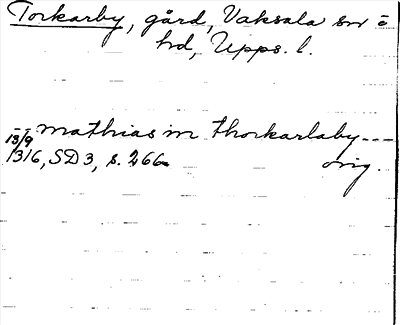 Torkarby, gård, Vaksala sn o
hd, Upps. l.
-- mathias in thorkarlaby ---
13/9
1316, SD 3, s. 266. orig.